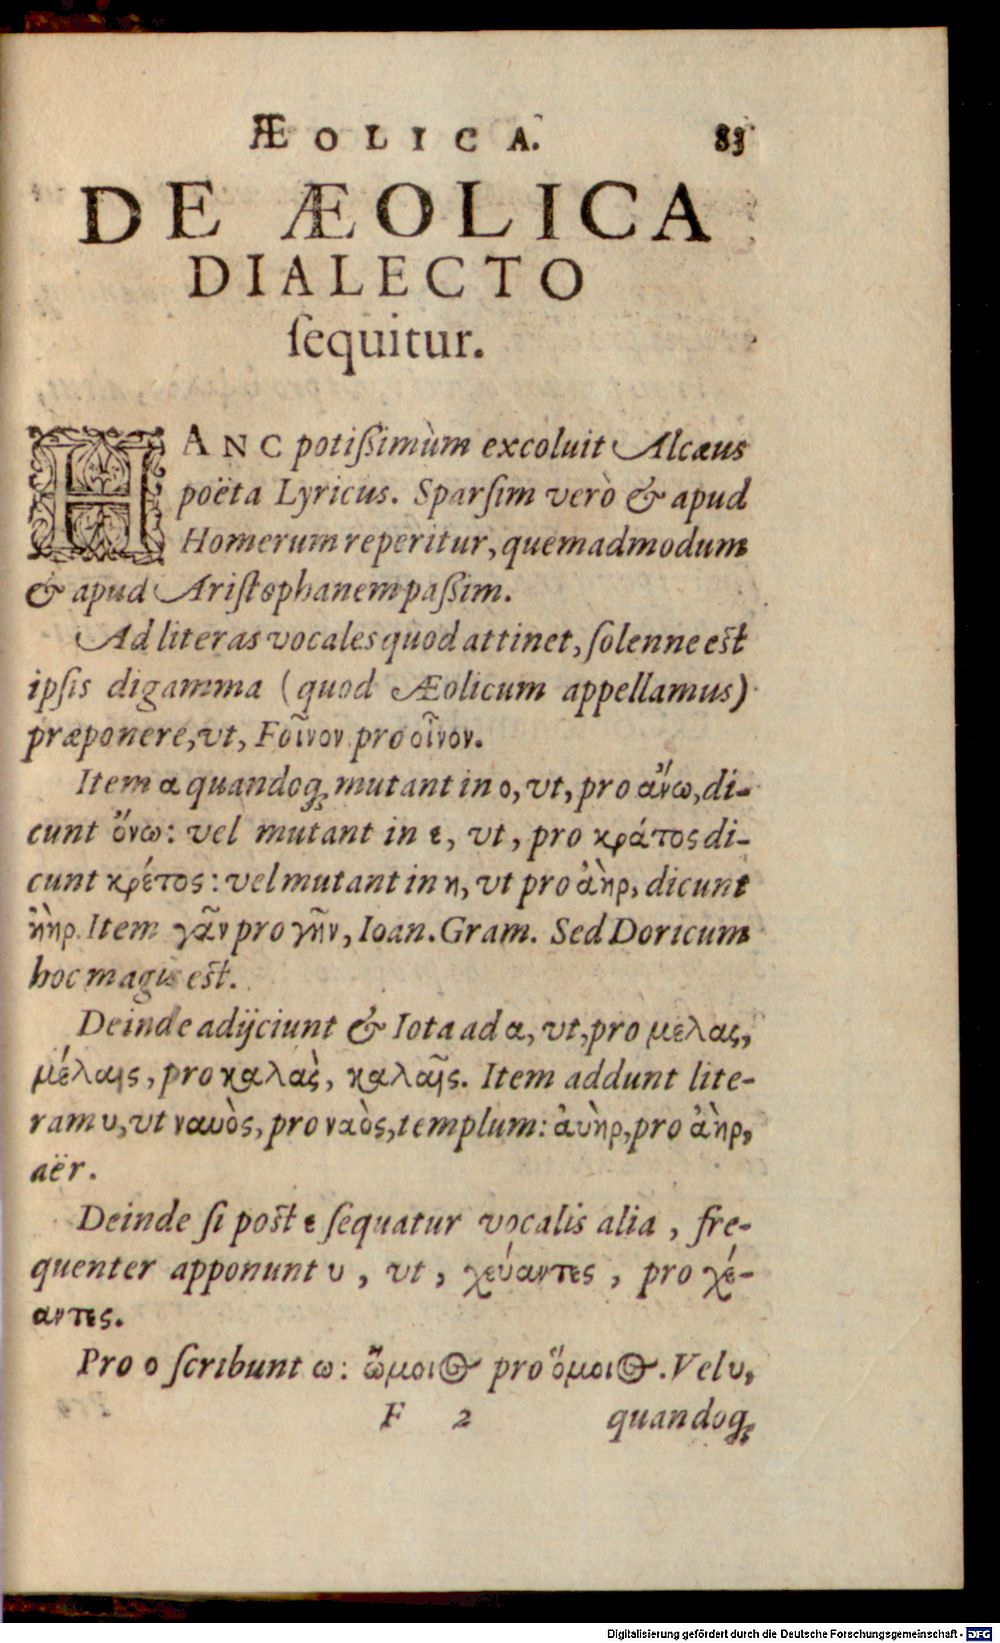 ÆOLICA. 83
DE ÆOLICA
DIALECTO
ſequitur.
HANC potißimùm excoluit Alcæus
poëta Lyricus. Sparſim verò & apud
Homerum reperitur, quemadmodum
& apud Ariſtophanem paßim.
Ad literas vocales quod attinet, ſolenne eſt
ipſis digamma (quod Æolicum appellamus)
præponere, vt, Fοῖνον pro οἶνον.
Item α quandoq; mutant in ο, vt, pro ἄνω, di-
cunt ὄνω: vel mutant in ε, vt, pro κράτος di-
cunt κρέτος: vel mutant in η, vt pro ἀὴρ, dicunt
ἠὴρ. Item γᾶν pro γῆν, Ioan. Gram. Sed Doricum
hoc magis eſt.
Deinde adijciunt & Iota ad α, vt, pro μελας,
μέλαις, pro καλὰς, καλαῖς. Item addunt lite-
ram υ, vt ναυὸς, pro ναὸς, templum: ἀυὴρ, pro ἀὴρ,
aër.
Deinde ſi poſt ε ſequatur vocalis alia, fre-
quenter apponunt υ, vt, χεύαντες, pro χέ-
αντες.
Pro ο ſcribunt ω: ὤμοιος pro ὅμοιος. Vel υ,
F 2 quandoq;
Digitalisierung gefördert durch die Deutsche Forschungsgemeinschaft - DFG